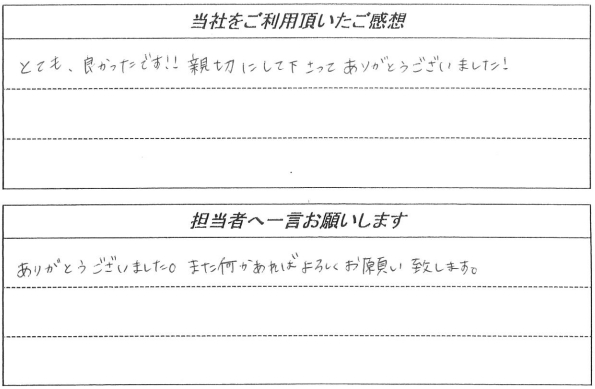 当社をご利用頂いたご感想
とても、良かったです!! 親切にして下さって ありがとうございました!
担当者へ一言お願いします
ありがとうございました。また何かあればよろしくお願い致します。